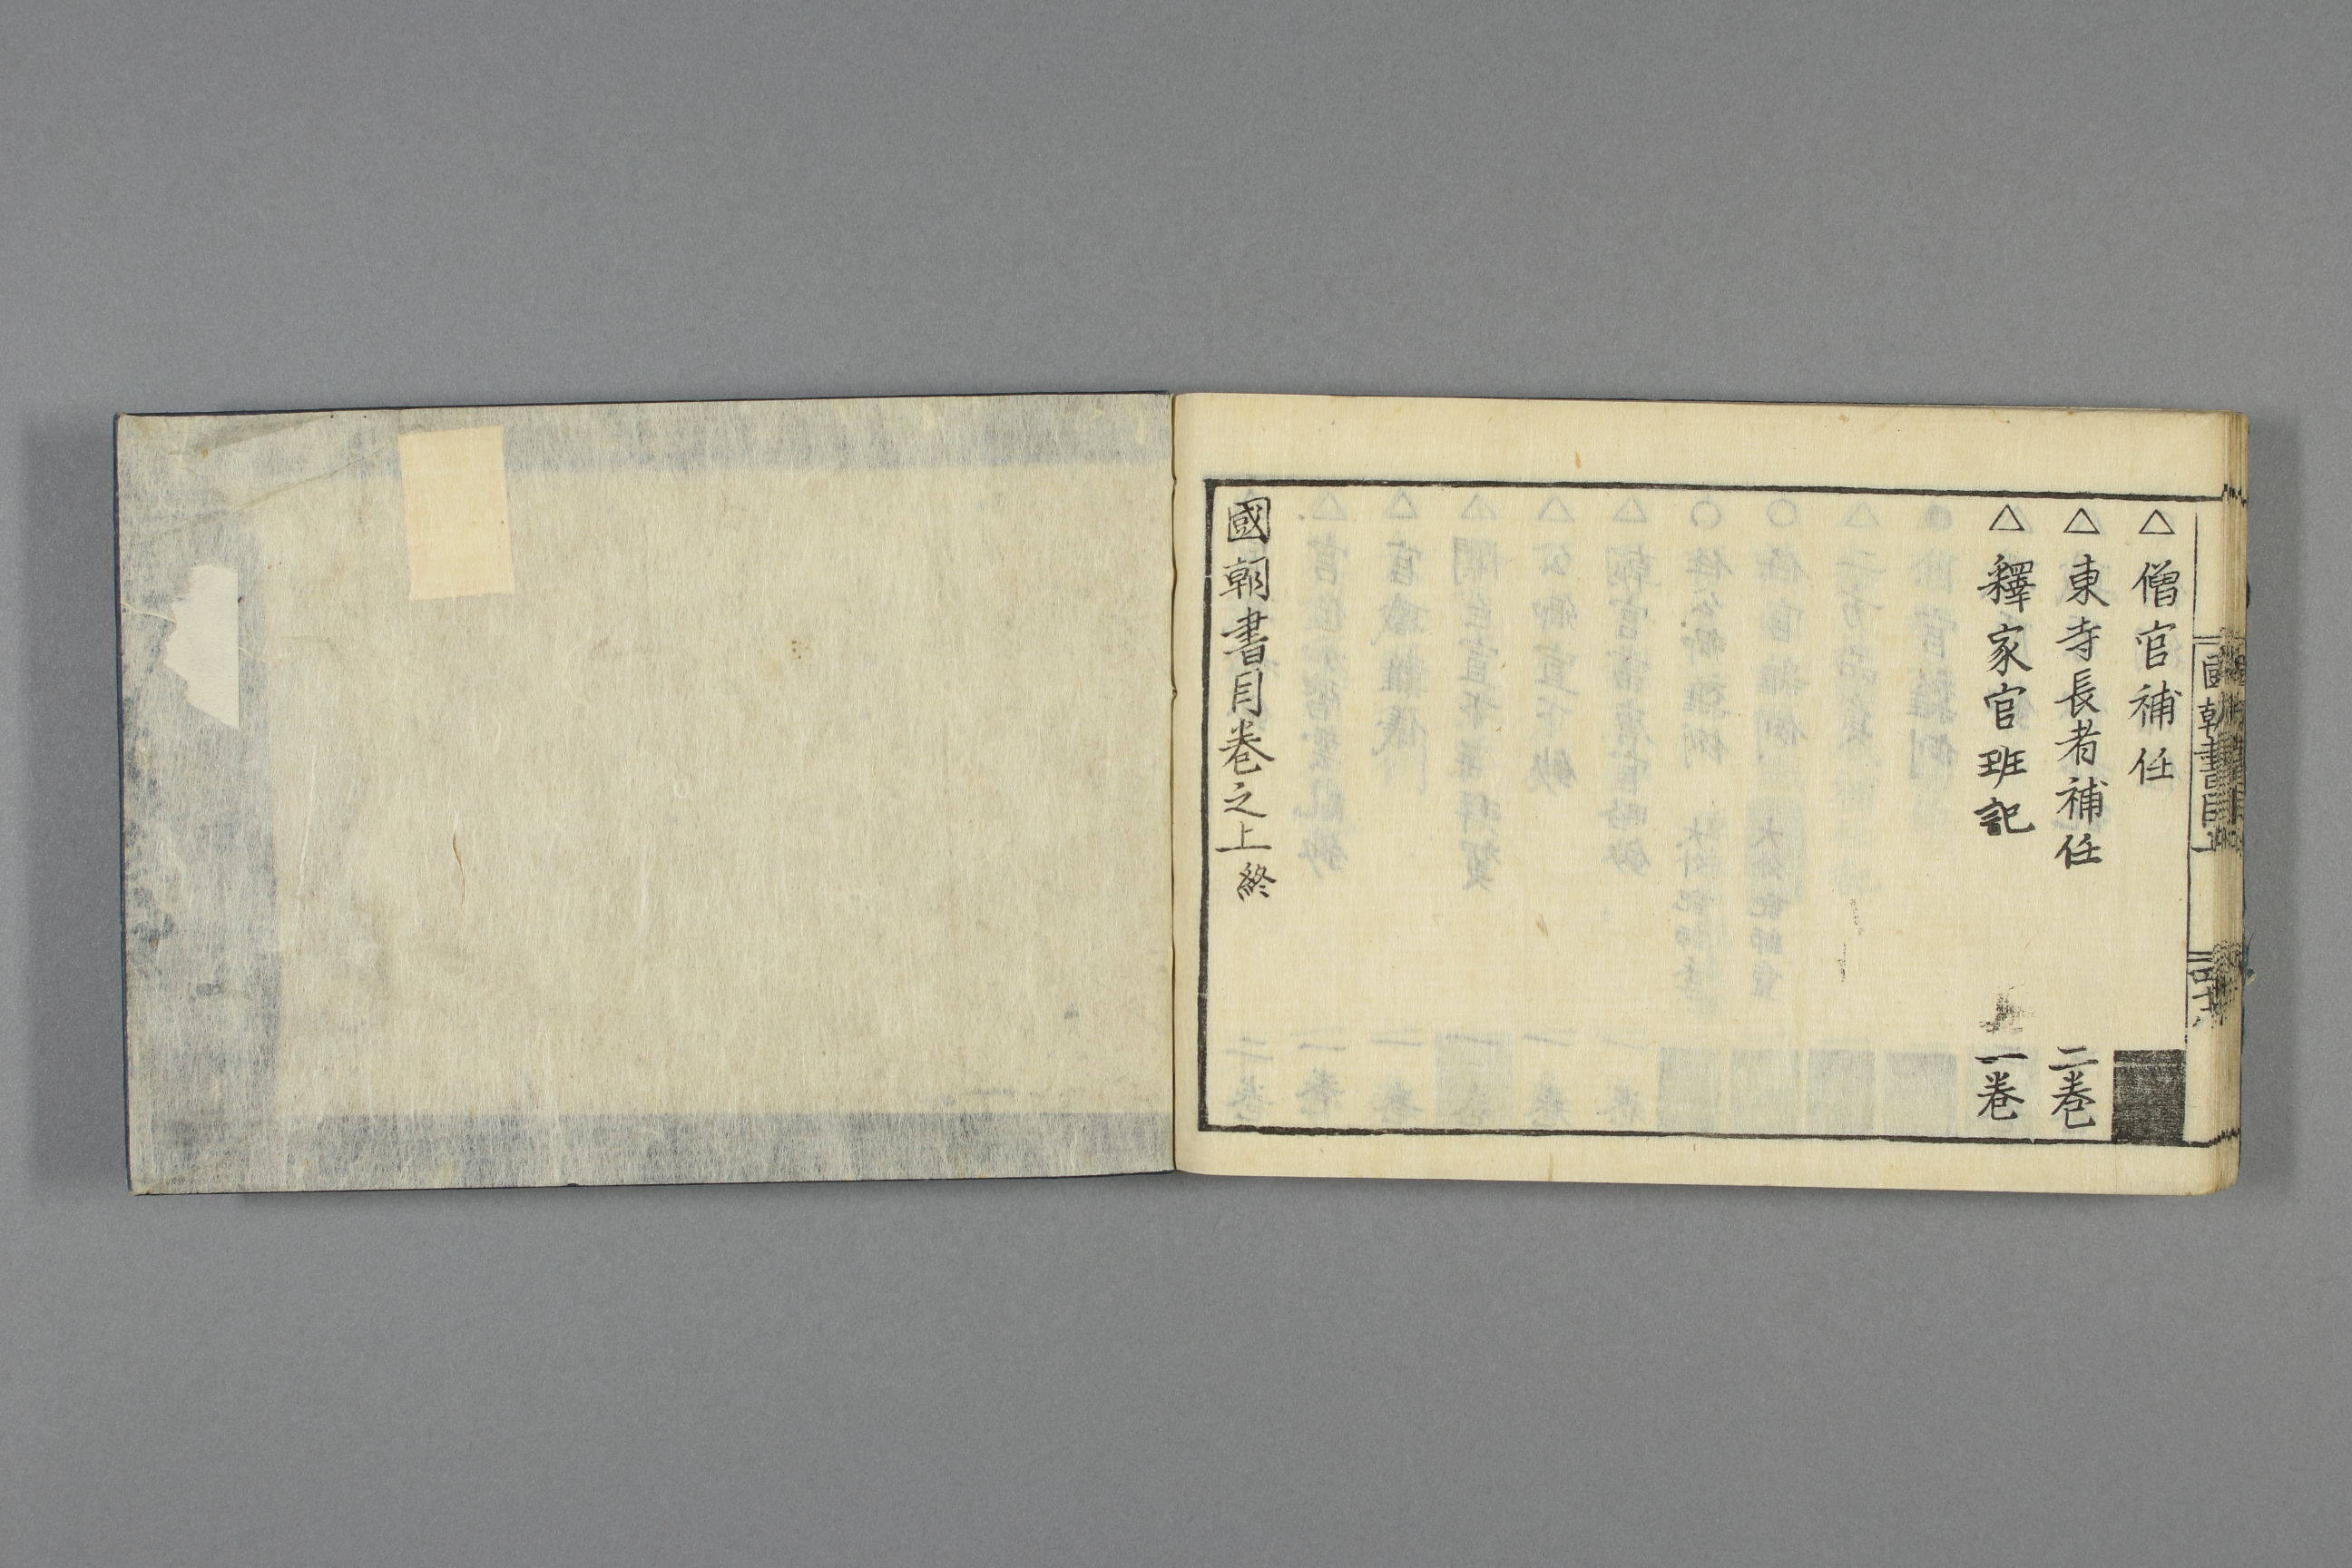 △僧官補任
△東寺長者補任 二巻
△釋家官班記 一巻
國朝書目巻之上終
國朝書目上